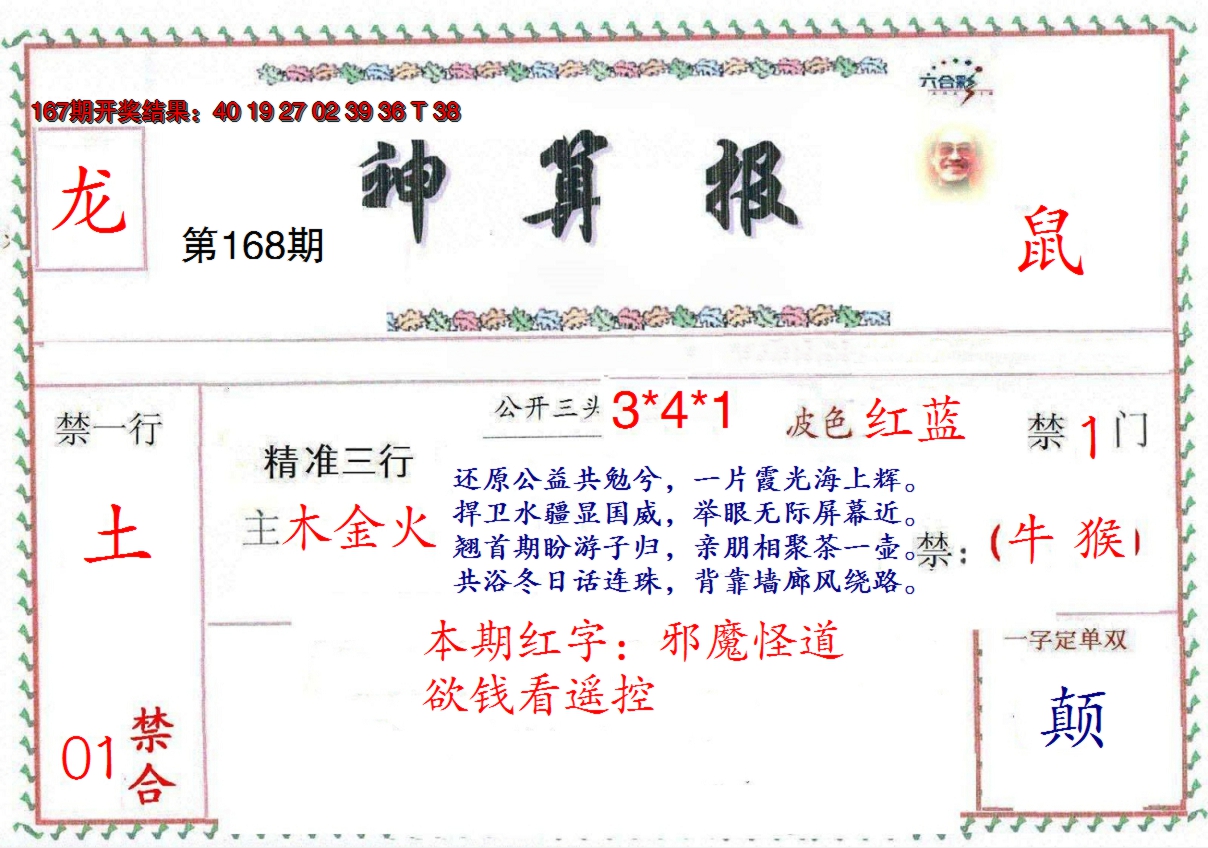 六合彩
167期开奖结果：40 19 27 02 39 36 T 38
龙
神算报
第168期
鼠
禁一行
土
01
禁合
公开三头 3*4*1
波色 红蓝
禁1门
精准三行
主木金火
还原公益共勉兮，一片霞光海上辉。
捍卫水疆显国威，举眼无际屏幕近。
翘首期盼游子归，亲朋相聚茶一壶。
共浴冬日话连珠，背靠墙廊风绕路。
禁：（牛 猴）
本期红字：邪魔怪道
欲钱看遥控
一字定单双
颠